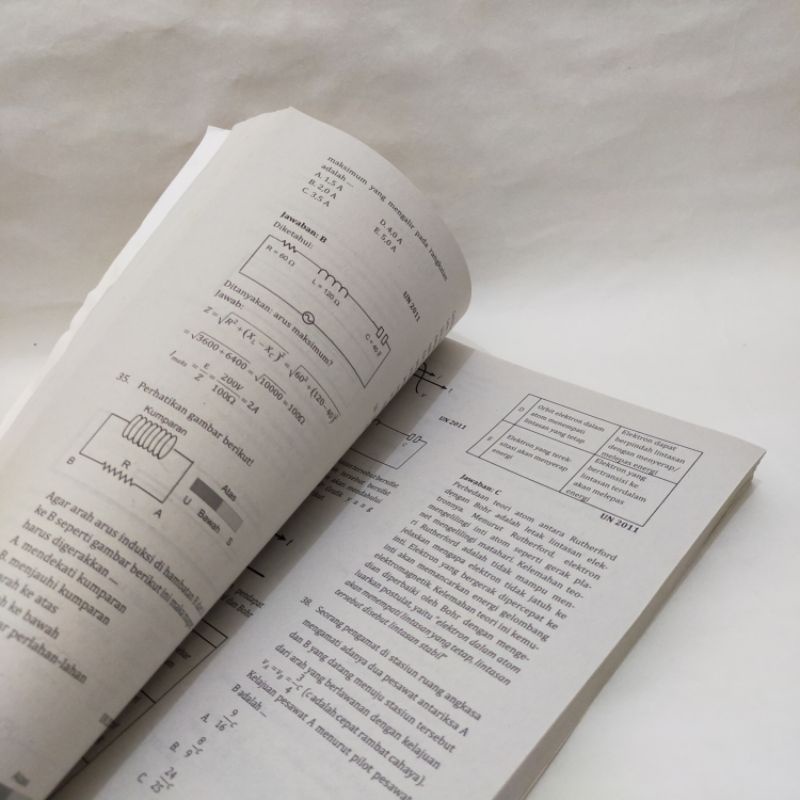 maksimum yang mengalir pada rangkaian
adalah ...
A. 1,5 A
B. 2,0 A
C. 3,5 A
D. 4,0 A
E. 5,0 A
UN 2011
Jawaban: B
Diketahui:
R = 60 Ω
L = 120 Ω
Ditanyakan: arus maksimum?
Jawab:
Z = √R² + (X_L − X_C)² = √60² + (120−40)²
= √3600 + 6400 = √10000 = 100Ω
I_maks = E/Z = 200V/100Ω = 2A
35. Perhatikan gambar berikut!
Kumparan
B
R
A
Atas
U
Bawah
S
Agar arah arus induksi di hambatan R
ke B seperti gambar berikut ini
harus digerakkan ...
A. mendekati kumparan
B. menjauhi kumparan
ke atas
ke bawah
perlahan-lahan
UN 2011
D
Orbit elektron dalam
atom menempati
lintasan yang tetap
Elektron dapat
berpindah lintasan
dengan menyerap/
melepas energi
E
Elektron yang terek-
sitasi akan menyerap
energi
Elektron yang
bertransisi ke
lintasan terdalam
akan melepas
energi
UN 2011
Jawaban: C
Perbedaan teori atom antara Rutherford
dengan Bohr adalah letak lintasan elek-
tronnya. Menurut Rutherford, elektron
mengelilingi inti atom seperti gerak pla-
net mengelilingi matahari. Kelemahan teo-
ri Rutherford adalah tidak mampu men-
jelaskan mengapa elektron tidak jatuh ke
inti. Elektron yang bergerak dipercepat ke
ini akan memancarkan energi gelombang
elektromagnetik. Kelemahan teori ini kemu-
dian diperbaiki oleh Bohr dengan menge-
luarkan postulat, yaitu "elektron dalam atom
akan menempati lintasan yang tetap, lintasan
tersebut disebut lintasan stabil"
38. Seorang pengamat di stasiun ruang angkasa
mengamati adanya dua pesawat antariksa A
dan B yang datang menuju stasiun tersebut
dari arah yang berlawanan dengan kelajuan
v_A = v_B = 3/4 c (c adalah cepat rambat cahaya).
Kelajuan pesawat A menurut pilot pesawat
B adalah ...
A. 9/16 c
B. 8/9 c
C. 24/25 c